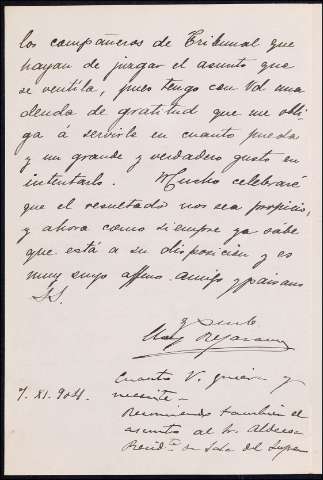 los compañeros de Tribunal que
hayan de juzgar el asunto que
se ventila, pues tengo con Vd una
deuda de gratitud que me obli-
ga á servirle en cuanto pueda
y un grande y verdadero gusto en
intentarlo. Mucho celebraré
que el resultado nos sea propicio,
y ahora como siempre ya sabe
que está a su disposición y es
muy suyo affmo. amigo y paisano
SS.
Cuanto V. quiera y
7. XI. 904. necesite -
Recomiendo también el
asunto al Sr. Aldecoa
Presid.te de Sala del Supremo